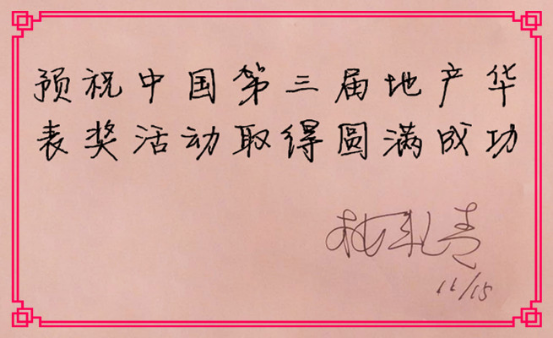 预祝中国第三届地产华
表奖活动取得圆满成功
11/15